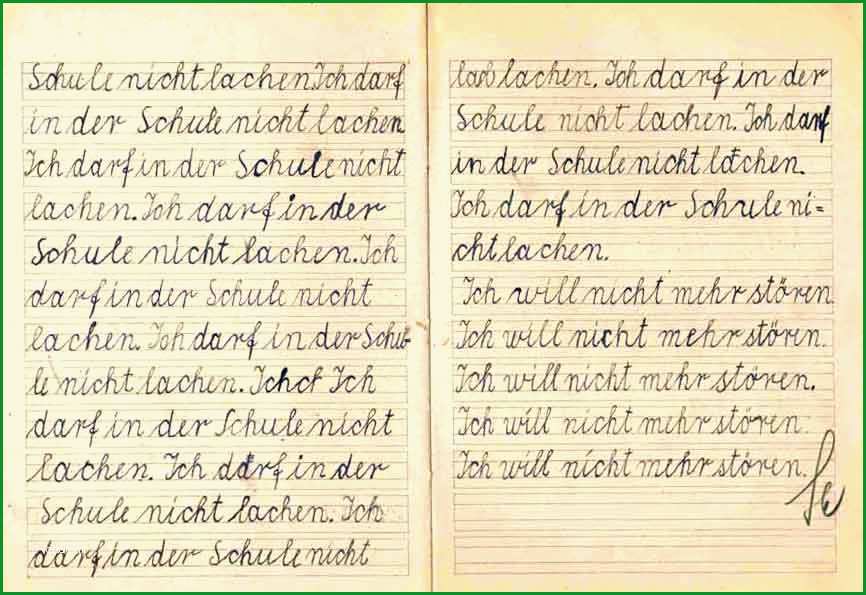 Schule nicht lachen. Ich darf
in der Schule nicht lachen
Ich darf in der Schule nicht
lachen. Ich darf in der
Schule nicht lachen. Ich
darf in der Schule nicht
lachen. Ich darf in der Schu-
le nicht lachen. Ich
darf in der Schule nicht
lachen. Ich darf in der
Schule nicht lachen. Ich
darf in der Schule nicht
lachen. Ich darf in der
Schule nicht lachen. Ich darf
in der Schule nicht lachen.
Ich darf in der Schule ni=
cht lachen.
Ich will nicht mehr stören
Ich will nicht mehr stören.
Ich will nicht mehr stören.
Ich will nicht mehr stören.
Ich will nicht mehr stören.